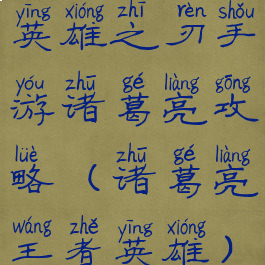 yīng xióng zhī rèn shǒu
英雄之刃手
yóu zhū gé liàng gōng
游诸葛亮攻
lüè zhū gé liàng
略（诸葛亮
wáng zhě yīng xióng
王者英雄）